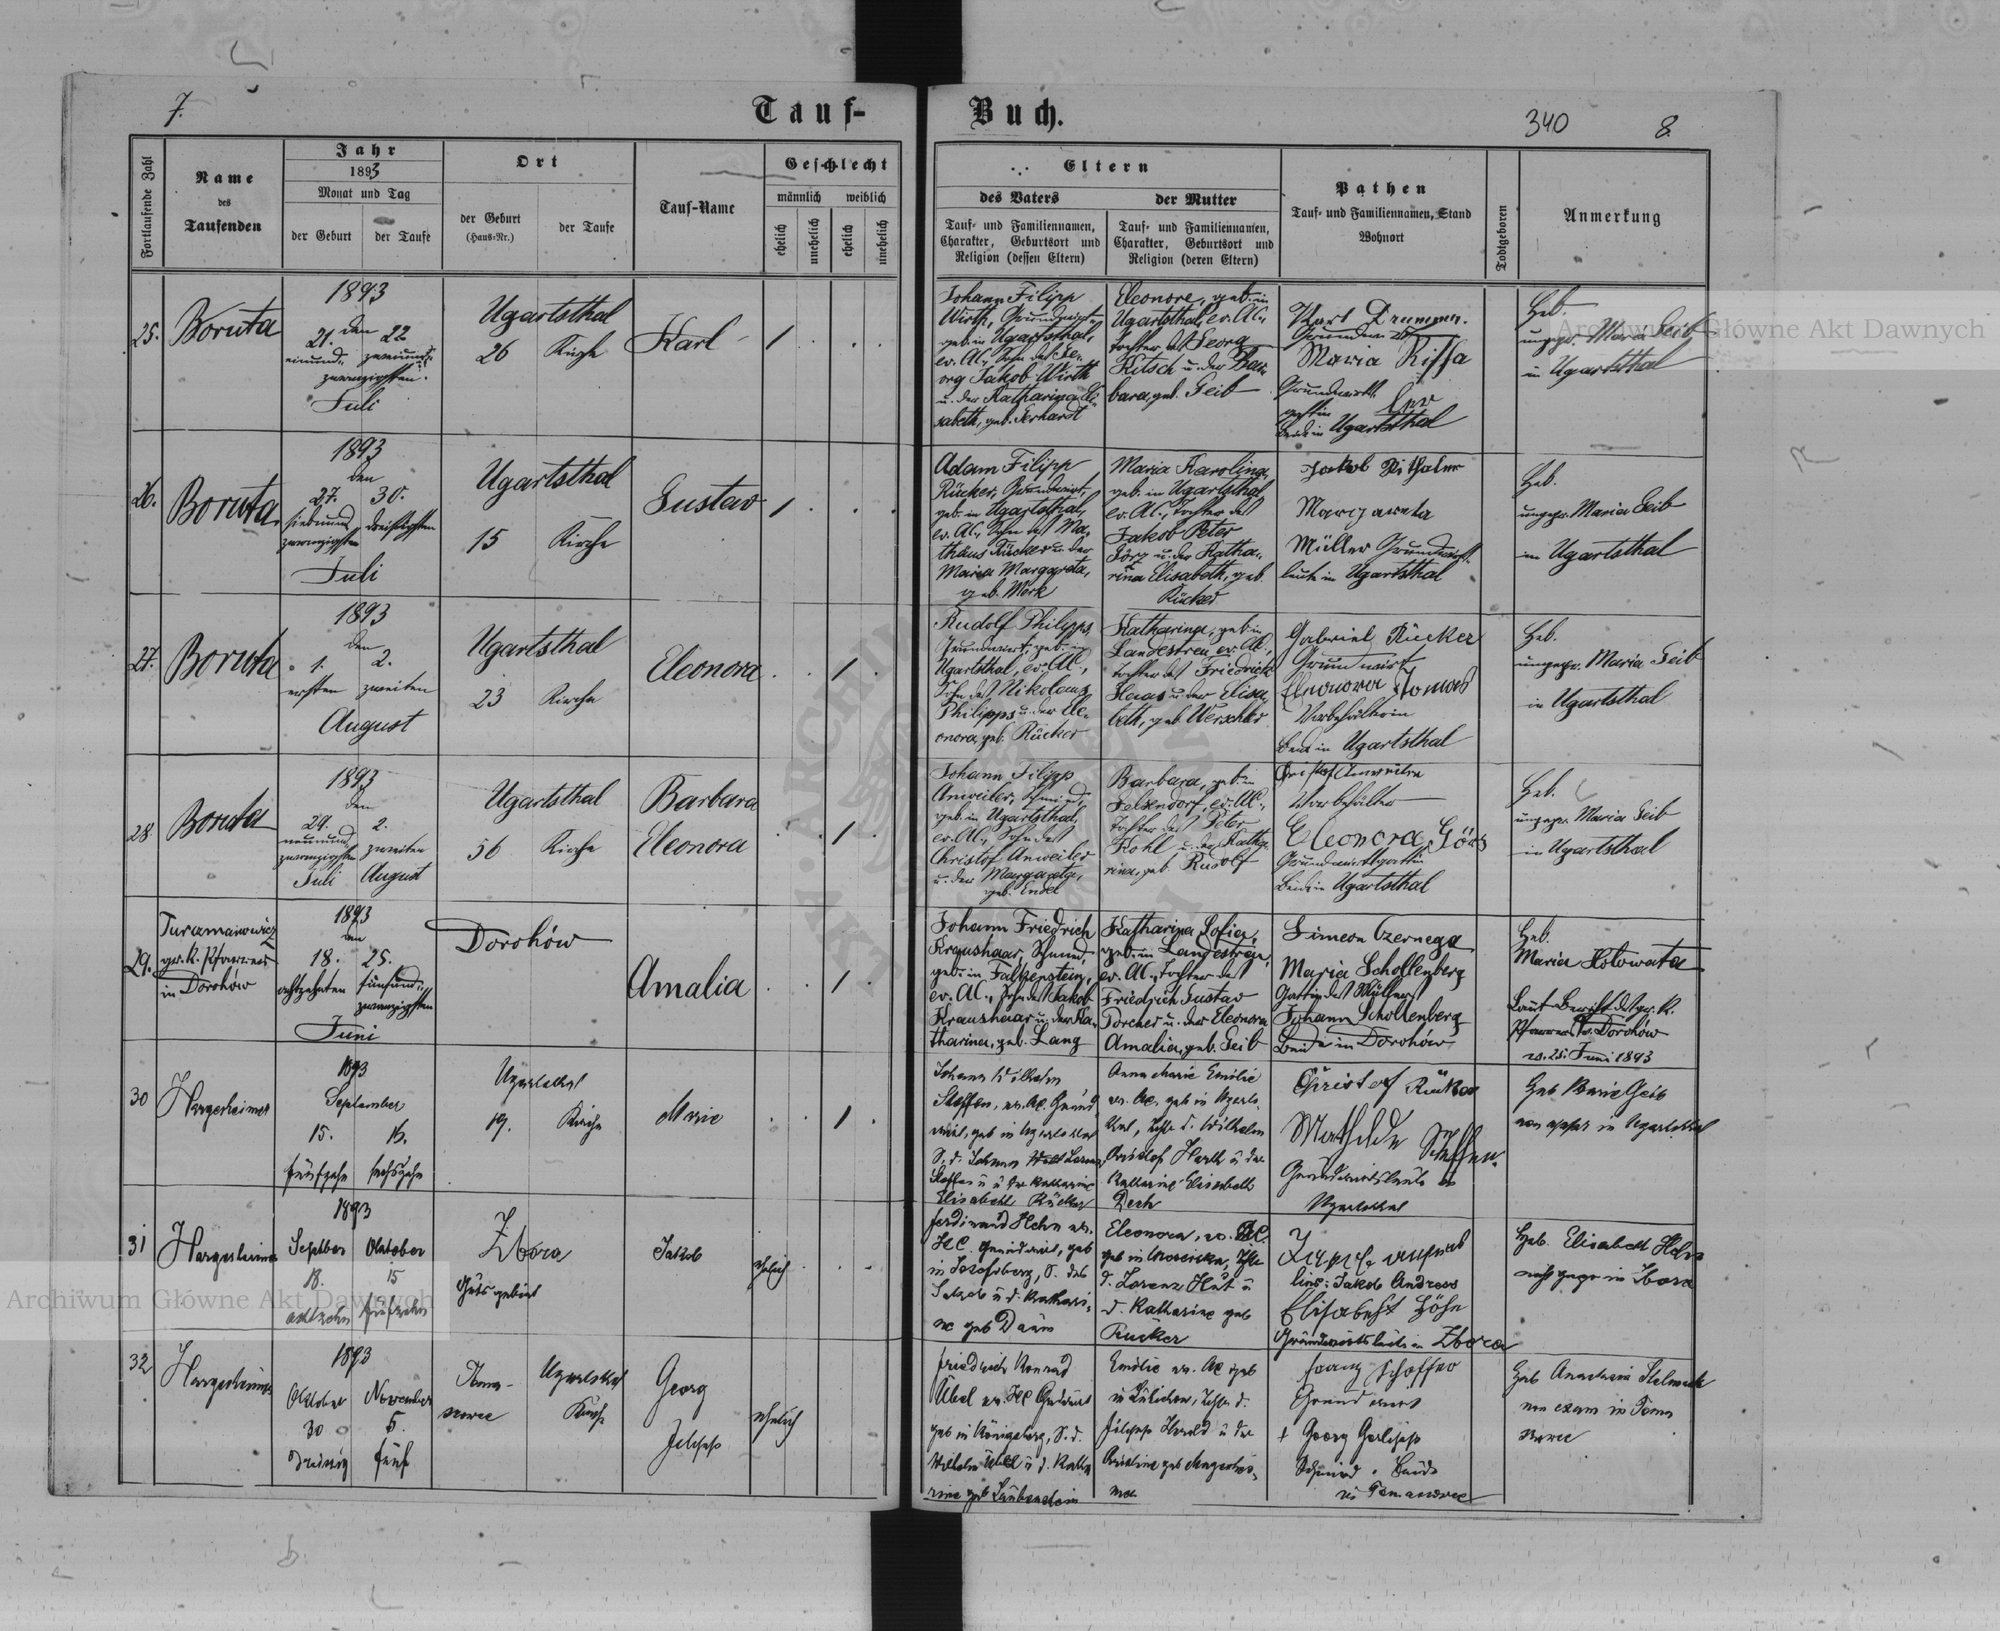 7.
Tauf-
Buch.
340
8.
Fortlaufende Zahl
Name
des
Taufenden
Jahr
1893
Monat und Tag
der Geburt
der Taufe
Ort
der Geburt
(Haus-Nr.)
der Taufe
Tauf-Name
Geschlecht
männlich
weiblich
ehelich
unehelich
ehelich
unehelich
Eltern
des Vaters
Tauf- und Familiennamen,
Charakter, Geburtsort und
Religion (dessen Eltern)
der Mutter
Tauf- und Familiennamen,
Charakter, Geburtsort und
Religion (deren Eltern)
Pathen
Tauf- und Familiennamen, Stand
Wohnort
Todtgeboren
Anmerkung
25.
Boruta
1893
den
21. 22.
einund- zweiund-
zwanzigsten
Juli
Ugartsthal
26 Kirche
Karl
1
Johann Filipp
Wirth, Grundwirt,
geb. in Ugartsthal,
ev. AC., Sohn des Ge-
org Jakob Wirth
u. der Katharina Eli-
sabeth, geb. Gerhardt
Eleonore, geb. in
Ugartsthal, ev. AC.,
Tochter des Georg
Kitsch u. der Bar-
bara, geb. Geib
Karl
Maria
in Ugartsthal
Heb.
ungepr. Maria Geib
in Ugartsthal
26.
Boruta
1893
den
27. 30.
siebenund- dreißigsten
zwanzigsten
Juli
Ugartsthal
15 Kirche
Gustav
1
Adam Filipp
Rücker, Grundwirt,
geb. in Ugartsthal,
ev. AC., Sohn des Ma-
thäus Rücker u. der
Maria Margareta,
geb. Merk
Maria Karolina,
geb. in Ugartsthal,
ev. AC., Tochter des
Jakob Peter
Görz u. der Katha-
rina Elisabeth, geb.
Rücker
Jakob
Margareta
Müller Grundwirts-
leute in Ugartsthal
Heb.
ungepr. Maria Geib
in Ugartsthal
27.
Boruta
1893
den
1. 2.
ersten zweiten
August
Ugartsthal
23 Kirche
Eleonora
1
Rudolf Philipps,
Grundwirt, geb. in
Ugartsthal, ev. AC.,
Sohn des Nikolaus
Philipps u. der Ele-
onora, geb. Rücker
Katharina, geb. in
Landestreu, ev. AC.,
Tochter des Friedrich
Haas u. der Elisa-
beth, geb. Werschler
Gabriel Rücker
Grundwirt
Eleonora Tomas
Vorbehälterin
Beide in Ugartsthal
Heb.
ungepr. Maria Geib
in Ugartsthal
28
Boruta
1893
den
29. 2.
neunund- zweiten
zwanzigsten
Juli August
Ugartsthal
56 Kirche
Barbara
Eleonora
1
Johann Filipp
Anweiler, Schmied,
geb. in Ugartsthal,
ev. AC., Sohn des
Christof Anweiler
u. der Margareta,
geb. Endel
Barbara, geb. in
Felsendorf, ev. AC.,
Tochter des Peter
Kohl u. der Katha-
rina, geb. Rudolf
Christof Anweiler
Vorbehälter
Eleonora Görz
Grundwirtsgattin
Beide in Ugartsthal
Heb.
ungepr. Maria Geib
in Ugartsthal
29.
Turamanowicz
gr. k. Pfarrer
in Dorohów
1893
den
18. 25.
achtzehnten fünfund-
zwanzigsten
Juni
Dorohów
Amalia
1
Johann Friedrich
Kraushaar, Schmied,
geb. in Falkenstein,
ev. AC., Sohn des Jakob
Kraushaar u. der Ka-
tharina, geb. Lang
Katharina Sofia,
geb. in Landestreu,
ev. AC., Tochter des
Friedrich Gustav
Porcher u. der Eleonora
Amalia, geb. Geib
Simeon Czernega
Maria Schollenberg
Gattin des Müllers
Johann Schollenberg
Beide in Dorohów
Heb.
Maria Hotowata
Laut Bericht des gr. k.
Pfarrers in Dorohów
v. 25. Juni 1893
30
Hargesheimer
1893
September
15. 16.
fünfzehn sechszehn
Ugartsthal
19. Kirche
Marie
1
Johann Wilhelm
Steffen, ev. AC. Grund-
wirt, geb in Ugartsthal
S. d. Johann
Elisabeth Rücker
Anna Marie Emilie
ev. AC. geb in Ugarts-
thal, Tchtr d. Wilhelm
Christof Harth u der
Katharine Elisabeth
Christof Rücker
Mathilde Steffen
Grundwirtsleute in
Ugartsthal
Heb Marie Geib
non appr in Ugartsthal
31
Hargesheimer
1893
Septber Oktober
18. 15
achtzehn fünfzehn
Zbora
Gutsgebiet
Jakob
ehelich
Ferdinand Hehn ev.
HC. Grundwirt, geb
in Josefsberg, S. des
Jakob u d. Kathari-
ne geb Daum
Eleonora, ev. HC.
geb in Mosciska, Tchtr
d. Lorenz Hut u
d. Katharine geb
Rücker
Jakob Andress
Elisabeht Höhn
Grundwirtsleute in Zbora
Heb. Elisabeth Hehn
nicht gepr in Zbora
32
Hargesheimer
1893
Oktober November
30 5.
dreißig fünf
Ugartsthal
Kirche
Georg
Filipp
ehelich
Friedrich Konrad
Übel ev. HC Grundwirt
geb in Königsberg, S. d.
Wilhelm Übel u d. Katha
rine geb Laubenstein
Emilie ev. AC geb
Filipp Harold u der
Christine geb Hargeshei-
mer
Franz Schaffer
Grundwirt
+ Georg
Schmied. Beide
in
Heb Anastasia
non exam in
Archiwum Główne Akt Dawnych
Archiwum Główne Akt Dawnych